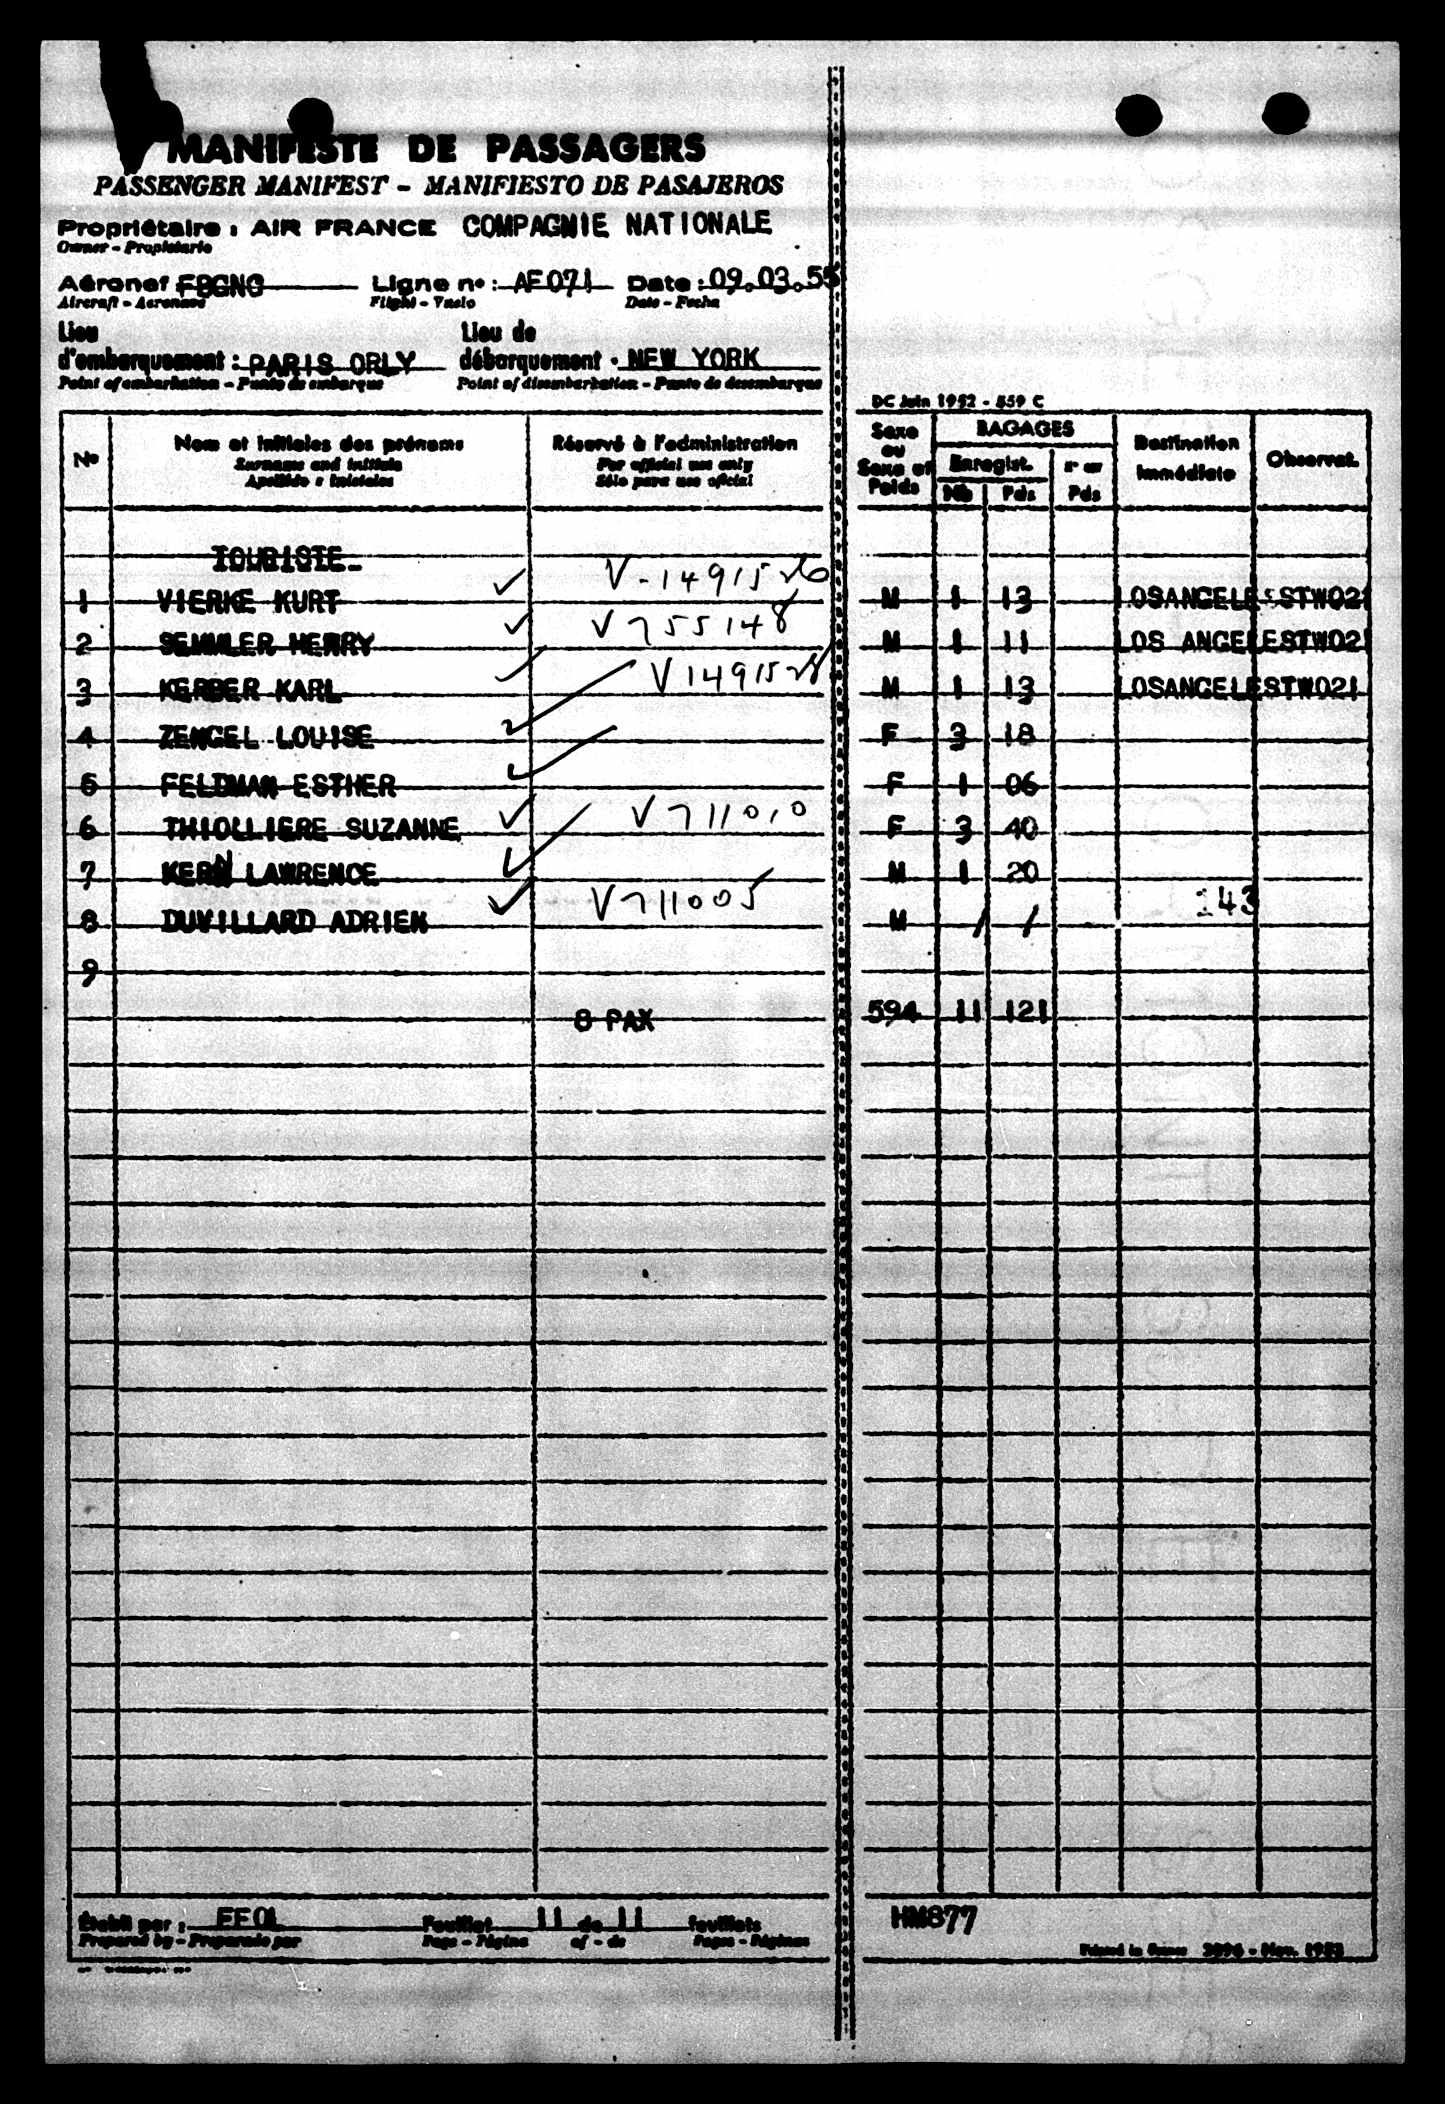 MANIFESTE DE PASSAGERS
PASSENGER MANIFEST - MANIFIESTO DE PASAJEROS
Propriétaire : AIR FRANCE COMPAGNIE NATIONALE
Owner - Propietario
Aéronef FBGNG Ligne n° : AF 071 Date : 09.03.55
Aircraft - Aeronave Flight - Vuelo Date - Fecha
Lieu d'embarquement : PARIS ORLY Lieu de débarquement : NEW YORK
Point of embarkation - Punto de embarque Point of disembarkation - Punto de desembarque
DC Juin 1952 - 559 C
N° Nom et initiales des prénoms Réservé à l'administration Sexe ou Sexe et Poids BAGAGES Destination immédiate Observat.
Surname and initials For official use only Enregist.
Apellido e iniciales Sólo para uso oficial Nb Pds Pds
TOURISTE-
1 VIERKE KURT ✓ V-1491526 M 1 13 LOSANGELESTW021
2 SEMMLER HENRY ✓ V755148 M 1 11 LOS ANGELESTW021
3 KERBER KARL ✓ V1491528 M 1 13 LOSANGELESTW021
4 ZENGEL LOUISE ✓ F 3 18
5 FELDMAN ESTHER ✓ F 1 06
6 THIOLLIERE SUZANNE ✓ V711010 F 3 40
7 KERN LAWRENCE ✓ M 1 20
8 DUVILLARD ADRIEN ✓ V711005 M / / 143
9
8 PAX 594 11 121
Établi par : Feuillet 11 de 11 feuillets HM877
Prepared by - Preparado por Page - Página of - de Pages - Páginas
Printed in France 3896 - Nov. 1953